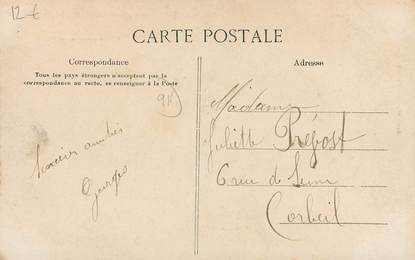 12 €
CARTE POSTALE
Correspondance
Tous les pays étrangers n'acceptent pas la
correspondance au recto, se renseigner à la Poste
Adresse
Georges
Madame
Juliette Prévost
6 rue de Seine
Corbeil